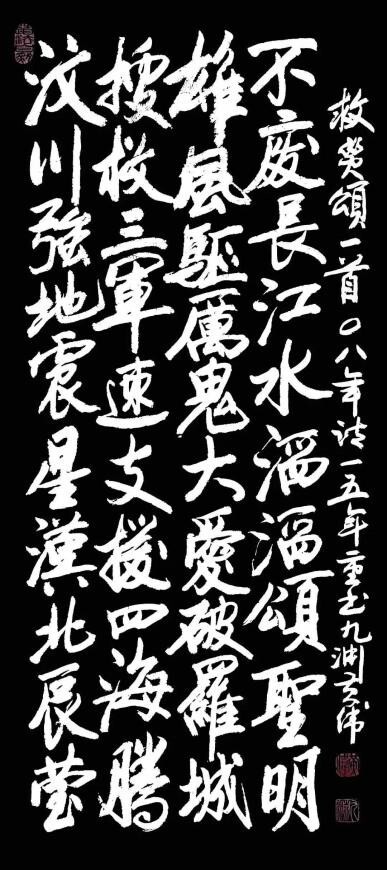 汶川強地震星漢北辰莹
搜救三軍速支援四海騰
雄風驅厲鬼大愛破羅城
不废長江水滔滔頌聖明
頌一首〇八年诗一五年重书九